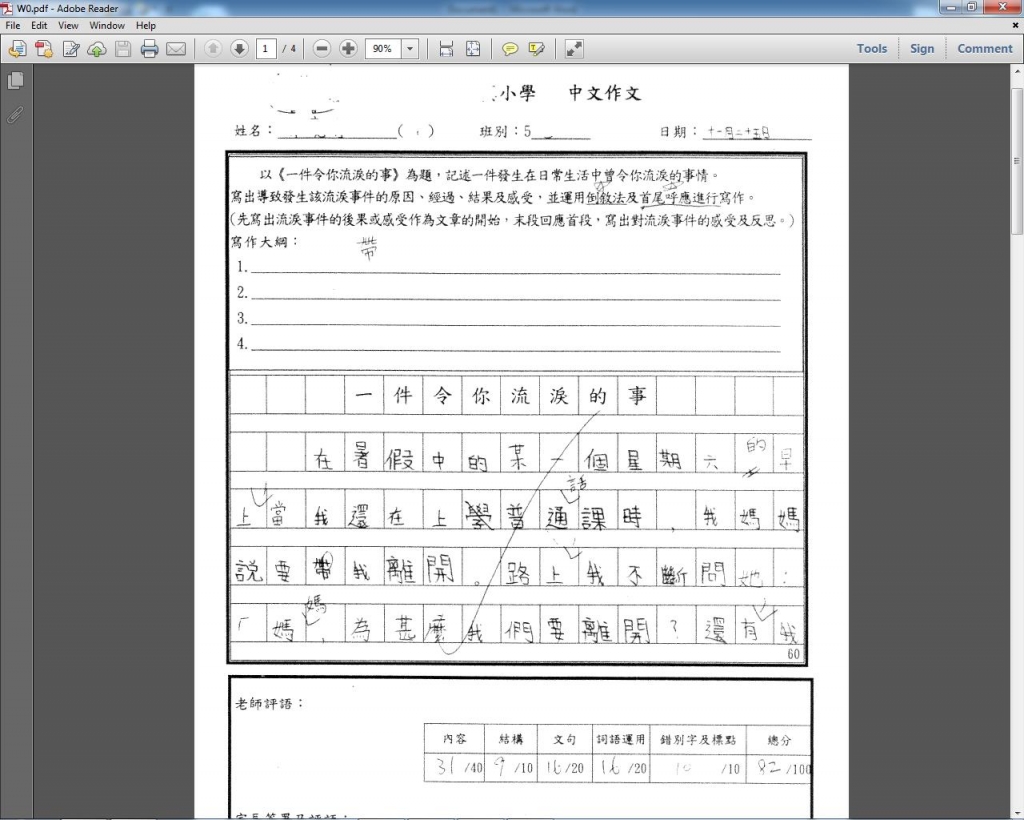 W0.pdf - Adobe Reader
File Edit View Window Help
1 / 4 90% Tools Sign Comment
小學 中文作文
姓名： ( ) 班別：5 日期：十一月二十五日
以《一件令你流淚的事》為題，記述一件發生在日常生活中曾令你流淚的事情。
寫出導致發生該流淚事件的原因、經過、結果及感受，並運用倒敘法及首尾呼應進行寫作。
(先寫出流淚事件的後果或感受作為文章的開始，末段回應首段，寫出對流淚事件的感受及反思。)
寫作大綱：
帶
1.
2.
3.
4.
一件令你流淚的事
在暑假中的某一個星期六的早
話
上當我還在上學普通課時，我媽媽
說要帶我離開。路上我不斷問她：
媽
「媽，為甚麼我們要離開？還有我
60
老師評語：
內容 結構 文句 詞語運用 錯別字及標點 總分
31 /40 9 /10 16 /20 16 /20 10 /10 82 /100
家長簽署及評語：